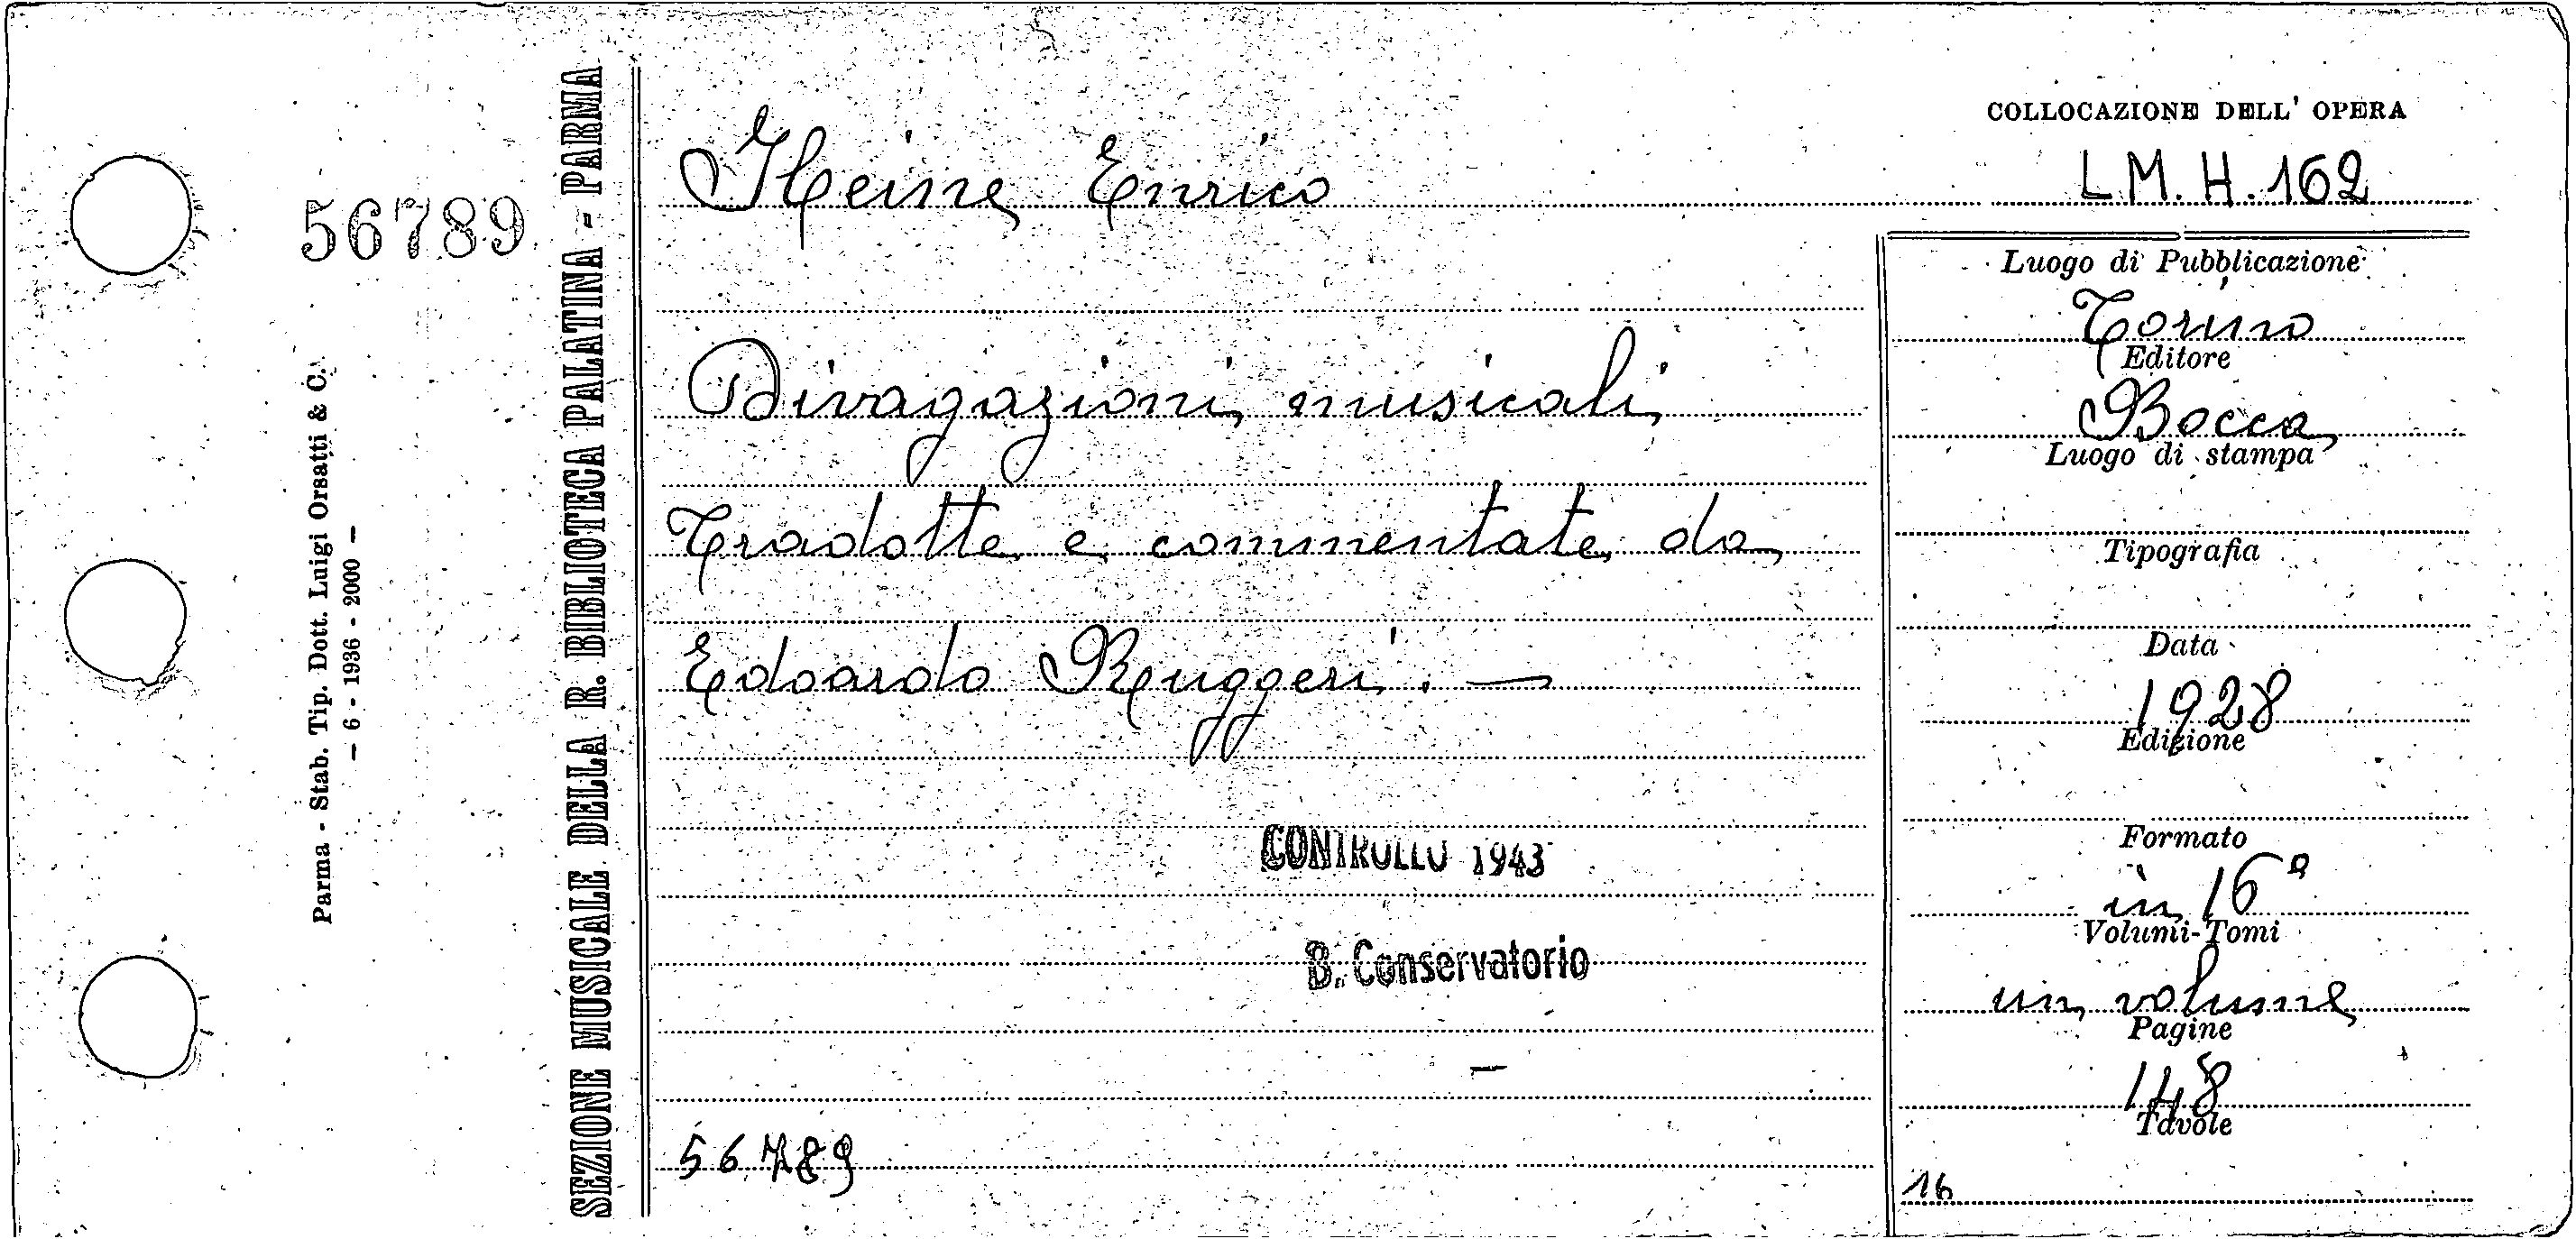 56789
Parma - Stab. Tip. Dott. Luigi Orsatti & C.
— 6 - 1936 - 2000 —
SEZIONE MUSICALE DELLA R. BIBLIOTECA PALATINA - PARMA
Heine Enrico
Divagazioni musicali
Tradotte e commentate da
Edoardo Ruggeri. —
CONTROLLO 1943
B. Conservatorio
56789
COLLOCAZIONE DELL' OPERA
LM. H. 162
Luogo di Pubblicazione
Torino
Editore
Bocca
Luogo di stampa
Tipografia
Data
1928
Edizione
Formato
in 16°
Volumi-Tomi
un volume
Pagine
148
Tavole
16